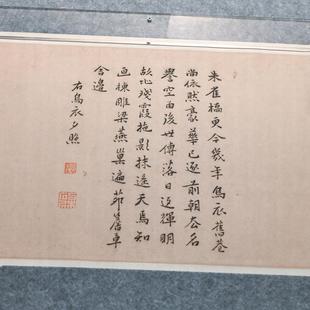 朱雀橋更今幾年烏衣舊巷
尚依然豪華已逐前朝去名
譽空由後世傳落日返輝明
殘霞拖影抹遙天焉知
画棟雕梁燕巢遍茆簷草
舍邊
右烏衣夕照